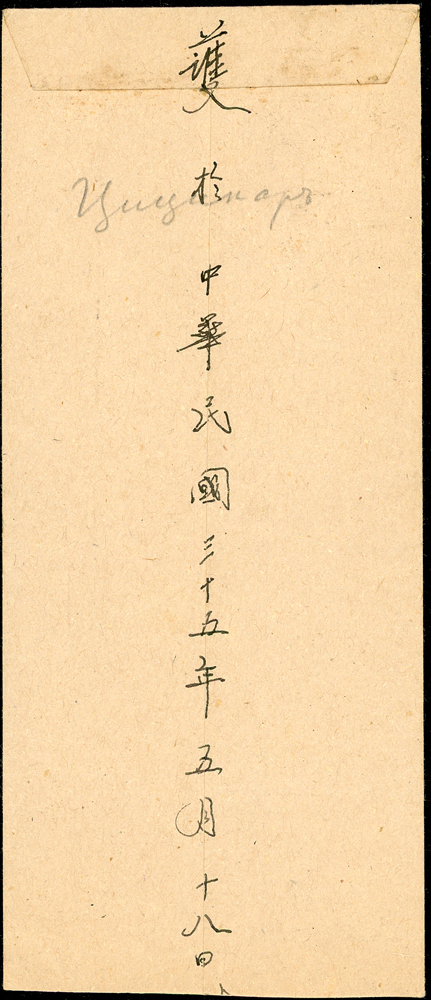 護於中華民國三十五年五月十八日
Цицикаръ